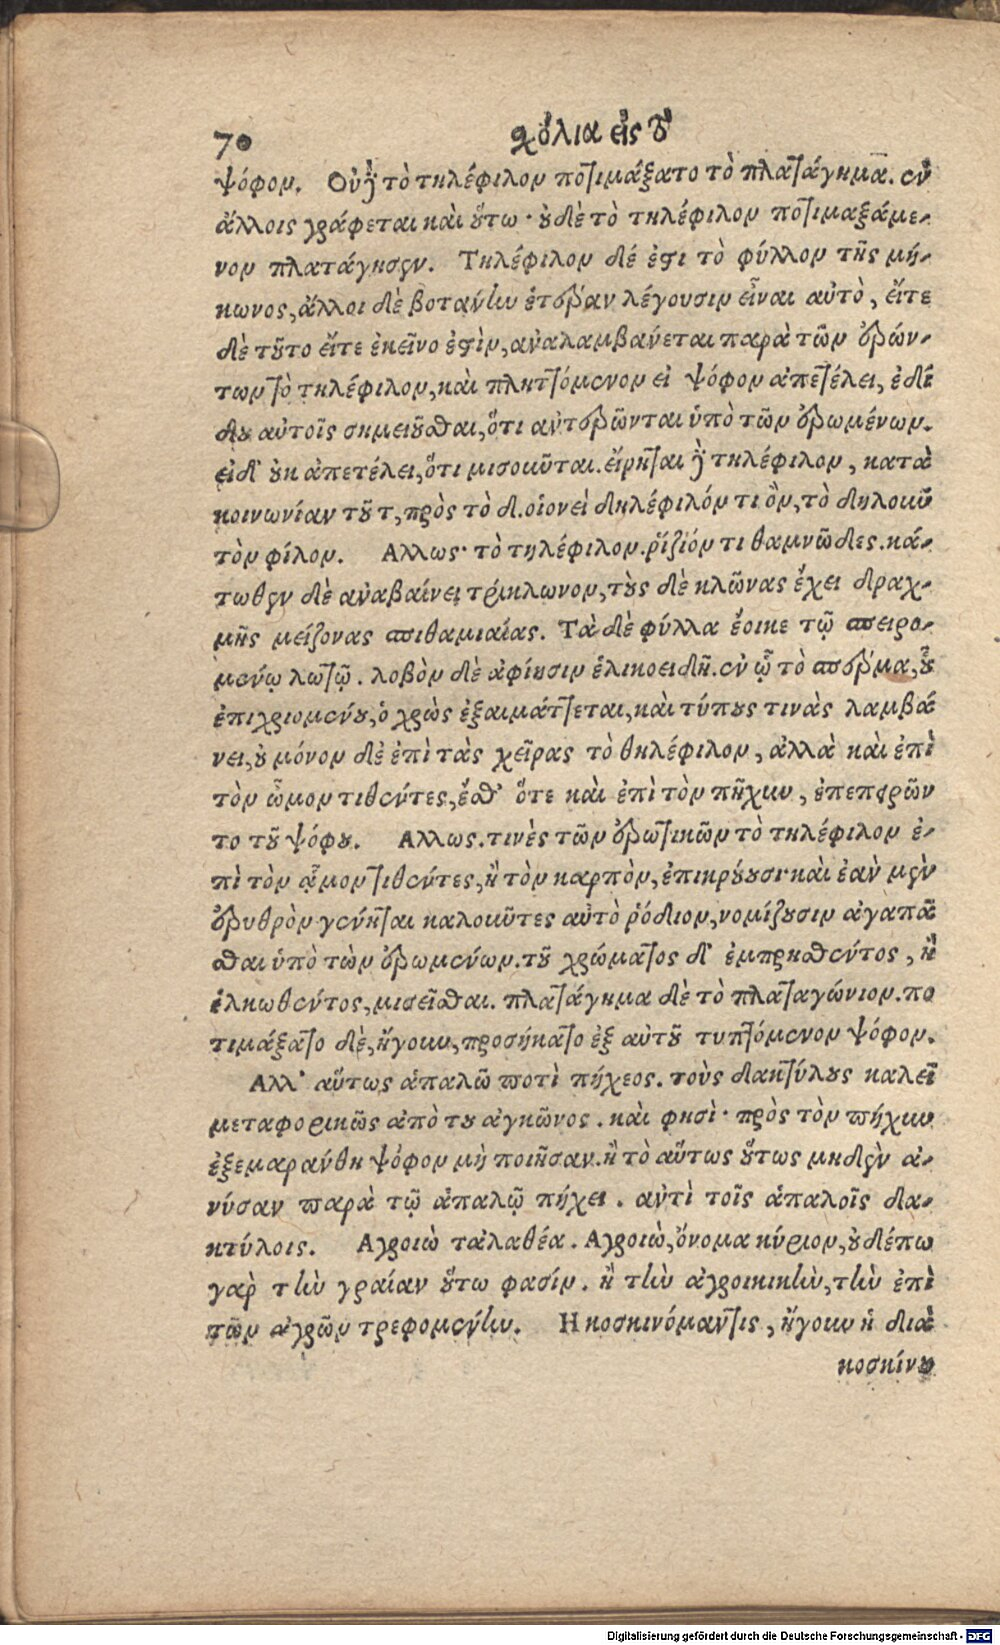 70 σχόλια εἰς τὸ
ψόφον. Οὐδὲ τὸ τηλέφιλον ποτιμάξατο τὸ πλατάγημα. ἐν
ἄλλοις γράφεται καὶ οὕτω· οὐδὲ τὸ τηλέφιλον ποτιμαξάμε-
νον πλατάγησεν. Τηλέφιλον δέ ἐστι τὸ φύλλον τῆς μή-
κωνος, ἄλλοι δὲ βοτάνην ἑτέραν λέγουσιν εἶναι αὐτὸ, εἴτε
δὲ τοῦτο εἴτε ἐκεῖνο ἐστὶν, ἀναλαμβάνεται παρὰ τῶν ἐρών-
των τὸ τηλέφιλον, καὶ πληττόμενον εἰ ψόφον ἀπετέλει, ἐδέ
δου αὐτοῖς σημειοῦσθαι, ὅτι ἀντερῶνται ὑπὸ τῶν ἐρωμένων.
εἰ δ' οὐκ ἀπετέλει, ὅτι μισοῦνται. εἴρηται δὲ τηλέφιλον, κατὰ
κοινωνίαν τοῦ τ, πρὸς τὸ δ. οἱονεὶ δηλέφιλόν τι ὂν, τὸ δηλοῦν
τὸν φίλον. Αλλως· τὸ τηλέφιλον. ῥίζιόν τι θαμνῶδες. κά-
τωθεν δὲ ἀναβαίνει τρίκλωνον, τοὺς δὲ κλῶνας ἔχει δραχ-
μῆς μείζονας σπιθαμιαίας. Τὰ δὲ φύλλα ἔοικε τῷ σπειρο-
μένῳ λωτῷ. λοβὸν δὲ ἀφίησιν ἑλικοειδῆ. ἐν ᾧ τὸ σπέρμα, οὗ
ἐπιχριομένου, ὁ χρὼς ἐξαιμάττεται, καὶ τύπους τινὰς λαμβά
νει, οὐ μόνον δὲ ἐπὶ τὰς χεῖρας τὸ θηλέφιλον, ἀλλὰ καὶ ἐπὶ
τὸν ὦμον τιθέντες, ἔσθ' ὅτε καὶ ἐπὶ τὸν πῆχυν, ἐπεπειρῶν
το τοῦ ψόφου. Αλλως. τινὲς τῶν ἐρωτικῶν τὸ τηλέφιλον ἐ-
πὶ τὸν ὦμον τιθέντες, ἢ τὸν καρπὸν, ἐπικρούουσι· καὶ ἐὰν μὲν
ἐρυθρὸν γένηται καλοῦντες αὐτὸ ῥόδιον, νομίζουσιν ἀγαπᾶ
σθαι ὑπὸ τῶν ἐρωμένων. τοῦ χρώματος δ' ἐμπρησθέντος, ἢ
ἑλκωθέντος, μισεῖσθαι. πλατάγημα δὲ τὸ πλαταγώνιον. πο
τιμάξατο δὲ, ἤγουν, προσήκατο ἐξ αὐτοῦ τυπτόμενον ψόφον.
Αλλ' αὔτως ἁπαλῶ ποτὶ πήχεος. τοὺς δακτύλους καλεῖ
μεταφορικῶς ἀπὸ του ἀγκῶνος. καὶ φησὶ· πρὸς τὸν πήχυν
ἐξεμαράνθη ψόφον μὴ ποιῆσαν. ἢ τὸ αὔτως οὕτως μηδὲν ἀ-
νύσαν παρὰ τῷ ἁπαλῷ πήχει. ἀντὶ τοῖς ἁπαλοῖς δα-
κτύλοις. Αγροιὼ ταλαθέα. Αγροιὼ, ὄνομα κύριον, οὐδέπω
γὰρ τὴν γραίαν οὕτω φασίν. ἢ τὴν ἀγροικικὴν, τὴν ἐπὶ
τῶν ἀγρῶν τρεφομένην. Η κοσκινόμαντις, ἤγουν ἡ διὰ
κοσκίνου
Digitalisierung gefördert durch die Deutsche Forschungsgemeinschaft - DFG